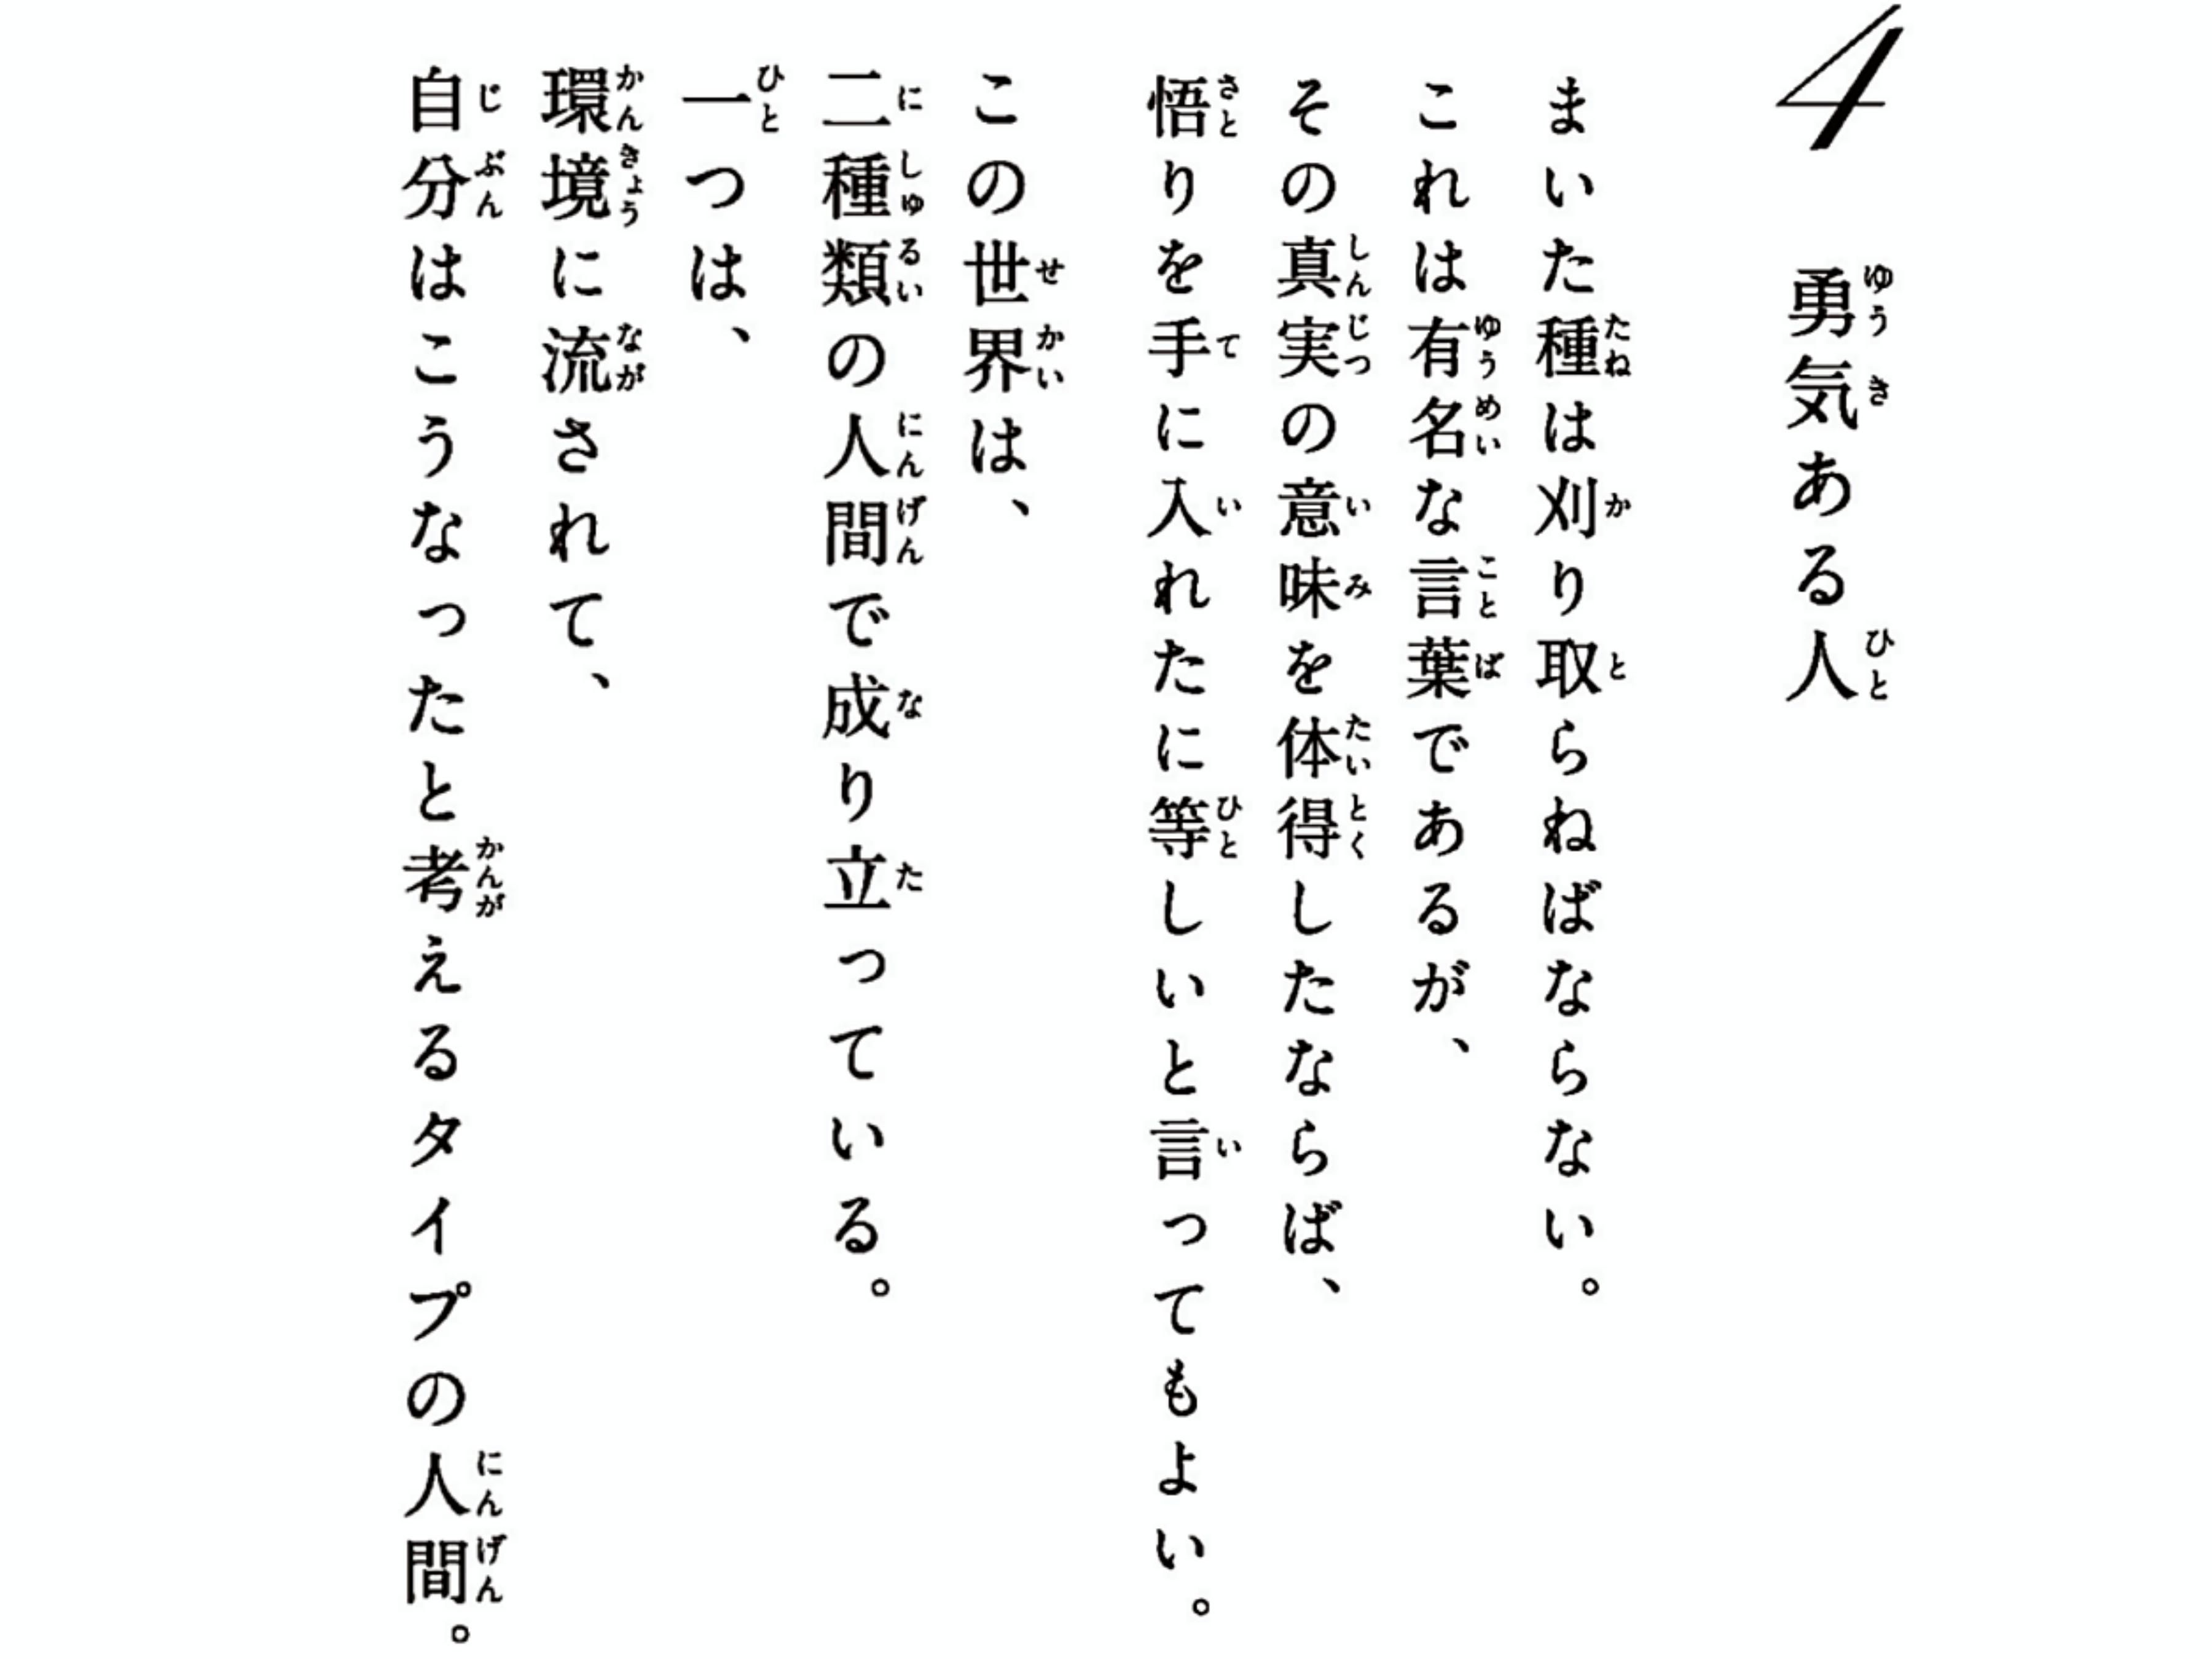 4 勇気ある人
まいた種は刈り取らねばならない。
これは有名な言葉であるが、
その真実の意味を体得したならば、
悟りを手に入れたに等しいと言ってもよい。
この世界は、
二種類の人間で成り立っている。
一つは、
環境に流されて、
自分はこうなったと考えるタイプの人間。